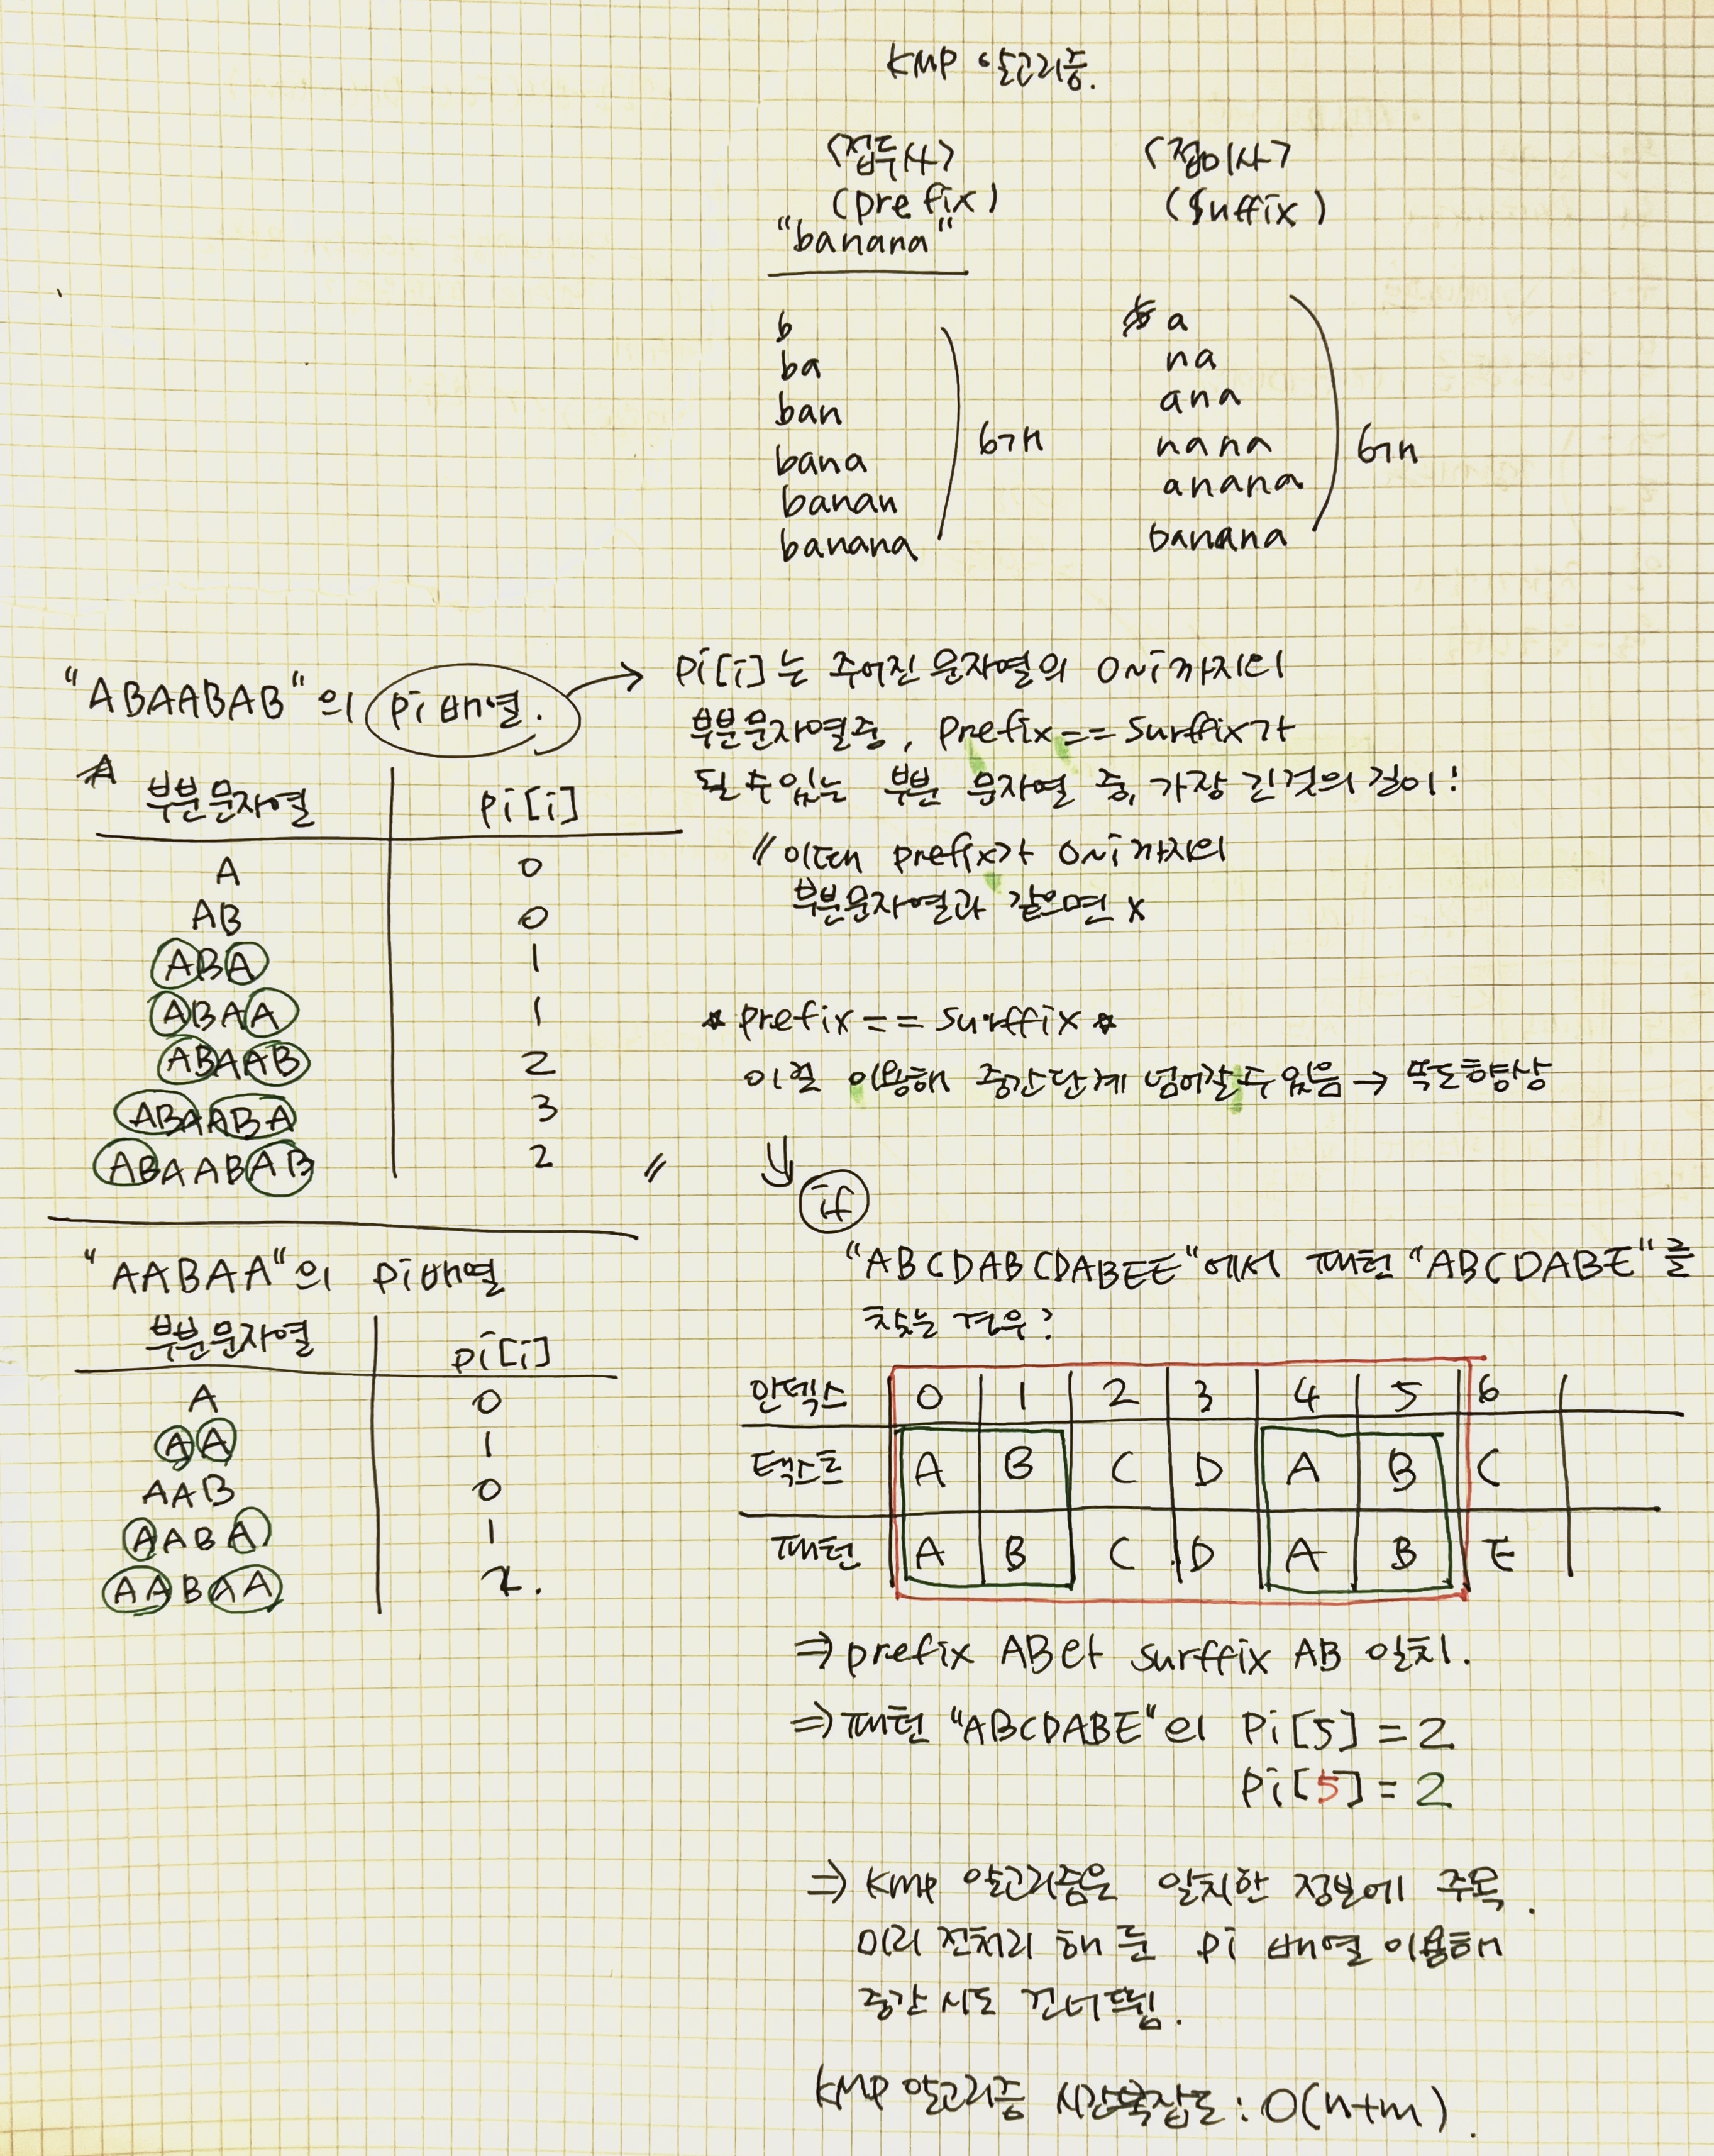 KMP 알고리즘.
<접두사> <접미사>
(prefix) (suffix)
"banana"
b a
ba na
ban ana
bana nana
banan anana
banana banana
6개 6개
"ABAABAB"의 pi 배열.
부분문자열 pi[i]
A 0
AB 0
ABA 1
ABAA 1
ABAAB 2
ABAABA 3
ABAABAB 2 //
→ pi[i]는 주어진 문자열의 0~i까지의
부분문자열중, prefix == surffix가
될 수 있는 부분 문자열 중, 가장 긴것의 길이!
// 이때 prefix가 0~i까지의
부분문자열과 같으면 x
* prefix == surffix *
이걸 이용해 중간단계 넘어갈 수 있음 → 속도향상
"AABAA"의 pi배열
부분문자열 pi[i]
A 0
AA 1
AAB 0
AABA 1
AABAA 2.
if
"ABCDABCDABEE"에서 패턴 "ABCDABE"를
찾는 경우?
인덱스 0 1 2 3 4 5 6
텍스트 A B C D A B C
패턴 A B C D A B E
⇒ prefix AB와 surffix AB 일치.
⇒ 패턴 "ABCDABE"의 Pi[5] = 2
Pi[5] = 2
⇒ KMP 알고리즘은 일치한 정보에 주목.
미리 전처리 해 둔 pi 배열 이용해
중간 시도 건너뜀.
KMP 알고리즘 시간복잡도 : O(n+m).